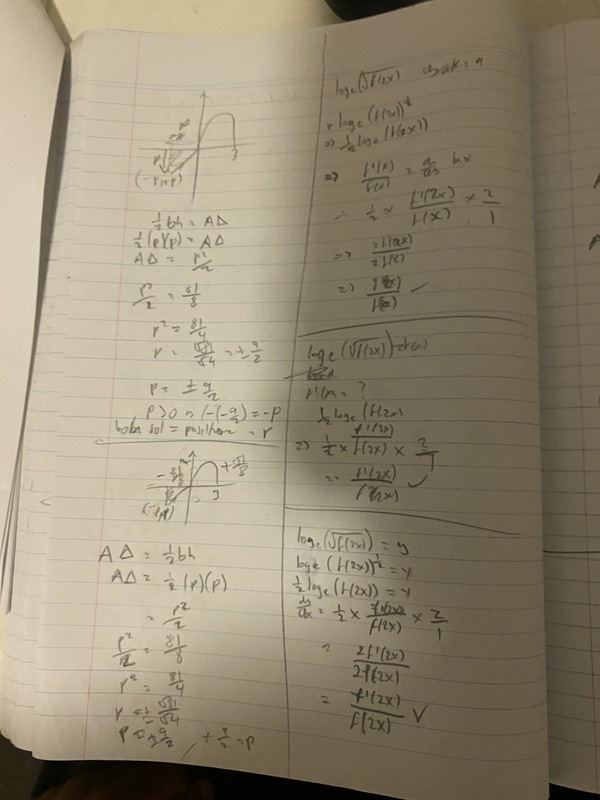 P
-P
P
(-P, -P)
3
½bh = AΔ
½(p)(p) = AΔ
AΔ = p²/2
p²/2 = 81/8
p² = 81/4
p = √81/√4 = ±9/2
p = ± 9/2
p > 0 -(-9/2) = -p
both sol = positive = r
3
AΔ = ½bh
AΔ = ½(p)(p)
= p²/2
p²/2 = 81/8
p² = 81/4
p = ± √81/√4
p = ±9/2, +9/2 = p
logₑ(√f(2x))
= logₑ(f(2x))^½
=> ½logₑ(f(2x))
=> f'(x)/f(x) = d/dx ln x
∴ ½ × f'(2x)/f(x) × 2/1
=> 2f'(2x)/2f(x)
=> f'(2x)/f(2x)
logₑ(√f(2x)) = f(x)
f'(x) = ?
½logₑ(f(2x)
=> ½ × f'(2x)/f(2x) × 2
∴ f'(2x)/f(2x)
logₑ(√f(2x)) = y
logₑ(f(2x))^½ = y
½logₑ(f(2x)) = y
dy/dx = ½ × f'(2x)/f(2x) × 2/1
= 2f'(2x)/2f(2x)
= f'(2x)/f(2x) ✓